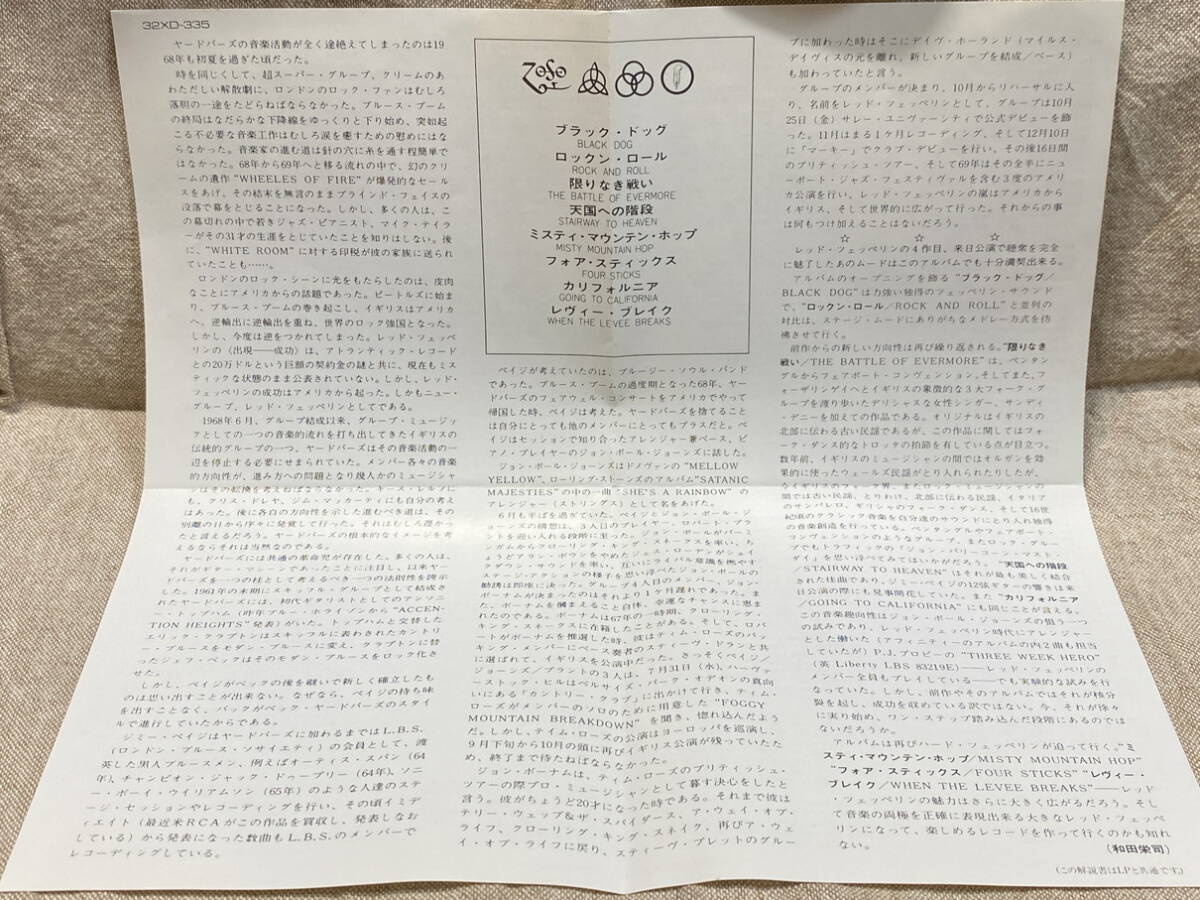 32XD-335
ヤードバーズの音楽活動が全く途絶えてしまったのは19
68年も初夏を過ぎた頃だった。
時を同じくして、超スーパー・グループ、クリームのあ
わただしい解散劇に、ロンドンのロック・ファンはむしろ
落胆の一途をたどらねばならなかった。ブルース・ブーム
の終局はなだらかな下降線をゆっくりと下り始め、突如起
こる不必要な音楽工作はむしろ涙を癒すための慰めにはな
らなかった。音楽家の進む道は針の穴に糸を通す程簡単で
はなかった。68年から69年へと移る流れの中で、幻のクリ
ームの遺作"WHEELES OF FIRE"が爆発的なセール
スをあげ、その結末を無言のままブラインド・フェイスの
没落で幕をとじることになった。しかし、多くの人は、こ
の幕切れの中で若きジャズ・ピアニスト、マイク・テイラ
ーがその31才の生涯をとじていたことを知りはしない。後
に、"WHITE ROOM"に対する印税が彼の家族に送られ
ていたことも……。
ロンドンのロック・シーンに光をもたらしたのは、皮肉
なことにアメリカからの話題であった。ビートルズに始ま
り、ブルース・ブームの巻き起こし、イギリスはアメリカ
へ、逆輸出に逆輸出を重ね、世界のロック強国となった。
しかし、今度は逆をつかれてしまった。レッド・ツェッペ
リンの〈出現——成功〉は、アトランティック・レコード
との20万ドルという巨額の契約金の謎と共に、現在もミス
ティックな状態のまま公表されていない。しかし、レッド・
ツェッペリンの成功はアメリカから起った。しかもニュー・
グループ、レッド・ツェッペリンとしてである。
1968年6月、グループ結成以来、グループ・ミュージッ
クとしての一つの音楽的流れを打ち出してきたイギリスの
伝統的グループの一つ、ヤードバーズはその音楽活動の一
辺を停止する必要にせまられていた。メンバー各々の音楽
的方向性が、進み方への問題となり幾人かのミュージシャ
ンはその転換を考えねばならなかった。キース・レルフに
も、クリス・ドレヤ、ジム・マッカーティにも自分の考え
はあった。後に各自の方向性を示した進むべき道は、その
別離の日から序々に発覚して行った。それはむしろ遅かっ
たと言えるだろう。ヤードバーズの根本的なイメージを考
えるならそれは当然なのである。
ヤードバーズには共通の革命児が存在した。多くの人は、
それがギター・マシーンであったことに注目し、以来ヤー
ドバーズを一つの柱として考えるべき一つの法則性を誇示
した。1961年の末期にスキッフル・グループとして結成さ
れたヤードバーズには、初代ギタリストとしてのアンソニ
ー・トップハム(昨年ブルー・ホライゾンから"ACCEN-
TION HEIGHTS"発表)がいた。トップハムと交替した
エリック・クラプトンはスキッフルに表わされたカントリ
ー・ブルースをモダン・ブルースに変え、クラプトンに替
ったジェフ・ベックはそのモダン・ブルースをロック化さ
せた。
しかし、ペイジがベックの後を継いで新しく確立したも
のは思い出すことが出来ない。なぜなら、ペイジの持ち味
を出すことなく、バックがベック・ヤードバーズのスタイ
ルで進行していたからである。
ジミー・ペイジはヤードバーズに加わるまではL.B.S.
(ロンドン・ブルース・ソサイエティ)の会員として、渡
英した黒人ブルースメン、例えばオーティス・スパン(64
年)、チャンピオン・ジャック・ドゥープリー(64年)、ソニ
ー・ボーイ・ウイリアムソン(65年)のような人達のステ
ージ・セッションやレコーディングを行い、その頃イミデ
ィエイト(最近米RCAがこの作品を買収し、発表しなお
している)から発表になった数曲もL.B.S.のメンバーで
レコーディングしている。
ZoSo
ブラック・ドッグ
BLACK DOG
ロックン・ロール
ROCK AND ROLL
限りなき戦い
THE BATTLE OF EVERMORE
天国への階段
STAIRWAY TO HEAVEN
ミスティ・マウンテン・ホップ
MISTY MOUNTAIN HOP
フォア・スティックス
FOUR STICKS
カリフォルニア
GOING TO CALIFORNIA
レヴィー・ブレイク
WHEN THE LEVEE BREAKS
ペイジが考えていたのは、ブルージー・ソウル・バンド
であった。ブルース・ブームの過度期となった68年、ヤー
ドバーズのフェアウェル・コンサートをアメリカでやって
帰国した時、ペイジは考えた。ヤードバーズを捨てること
は自分にとっても他のメンバーにとってもプラスだと。ペ
イジはセッションで知り合ったアレンジャー兼ベース、ピ
アノ・プレイヤーのジョン・ポール・ジョーンズに話した。
ジョン・ポール・ジョーンズはドノヴァンの"MELLOW
YELLOW"、ローリング・ストーンズのアルバム"SATANIC
MAJESTIES"の中の一曲"SHE'S A RAINBOW"の
アレンジャー(ストリングス)として名をあげた。
6月も半ばを過ぎていた。ペイジとジョン・ポール・ジ
ョーンズの構想は、3人目のプレイヤー、ロバート・プラ
ントを迎い入れる段階に至った。ジョン・ポールがバーミ
ンガムからクローリング・キング・スネークスを率い、ち
ょうどアラン・ボウンをやめたジェス・ローデンがシェイ
クダウン・サウンドを率い、互いにライバル意識を燃やす
ステージ・アクションの様子を思い浮べたジョン・ポールの
勧誘は即座に決った。グループ4人目のメンバー、ジョン・
ボーナムが決まったのはそれより1ケ月遅れであった。ま
た、ボーナムを掴まえること自体、幸運なチャンスに恵ま
れたのである。ボーナムは67年の一時期、クローリング・
キング・スネークスに在籍したことがある。そして、ロバ
ートがボーナムを推選した時、彼はティム・ローズのバッ
キング・メンバーにベース奏者のスティーヴ・ドランと共
に選ばれて、イギリスを公演中だった。さっそくペイジ/
ジョーンズ/プラントの3人は、7月31日(水)、ハーヴァ
ーストック・ヒルはベルサイズ・パーク・オデオンの真向
いにある「カントリー・クラブ」に出かけて行き、ティム・
ローズがメンバーのソロのために用意した"FOGGY
MOUNTAIN BREAKDOWN"を聞き、惚れ込んだよう
だ。しかし、ティム・ローズの公演はヨーロッパを巡演し、
9月下旬から10月の頭に再びイギリス公演が残っていたた
め、終了まで待たねばならなかった。
ジョン・ボーナムは、ティム・ローズのブリティッシュ・
ツアーの際プロ・ミュージシャンとして暮す決心をしたと
言う。彼がちょうど20才になった時である。それまで彼は
テリー・ウェッブ&ザ・スパイダース、ア・ウェイ・オブ・
ライフ、クローリング・キング・スネイク、再びア・ウェ
イ・オブ・ライフに戻り、スティーヴ・ブレットのグルー
プに加わった時はそこにデイヴ・ホーランド(マイルス・
デイヴィスの元を離れ、新しいグループを結成/ベース)
も加わっていたと言う。
グループのメンバーが決まり、10月からリハーサルに入
り、名前をレッド・ツェッペリンとして、グループは10月
25日(金)サレー・ユニヴァーシティで公式デビューを飾
った。11月はまる1ケ月レコーディング、そして12月10日
に「マーキー」でクラブ・デビューを行い、その後16日間
のブリティッシュ・ツアー、そして69年はその全半にニュ
ーポート・ジャズ・フェスティヴァルを含む3度のアメリ
カ公演を行い、レッド・ツェッペリンの嵐はアメリカから
イギリス、そして世界的に広がって行った。それからの事
は何もつけ加えることはないだろう。
☆ ☆ ☆
レッド・ツェッペリンの4作目、来日公演で聴衆を完全
に魅了したあのムードはこのアルバムでも十分満契出来る。
アルバムのオープニングを飾る"ブラック・ドッグ/
BLACK DOG"は力強い独得のツェッペリン・サウンド
で、"ロックン・ロール/ROCK AND ROLL"と並列の
対比は、ステージ・ムードにありがちなメドレー方式を彷
彿させて行く。
前作からの新しい方向性は再び繰り返される。"限りなき
戦い/THE BATTLE OF EVERMORE"は、ペンタン
グルからフェアポート・コンヴェンション、そしてまた、フ
ォーザリンゲイへとイギリスの象徴的な3大フォーク・グ
ループを渡り歩いたデリシャスな女性シンガー、サンディ
・デニーを加えての作品である。オリジナルはイギリスの
北部に伝わる古い民謡であるが、この作品に関してはフォ
ーク・ダンス的なトロッタの拍節を有している点が目立つ。
数年前、イギリスのミュージシャンの間ではオルガンを効
果的に使ったウェールズ民謡がとり入れられたりしたが、
なイギリスのフォーク界、またロック・ミュージシャンの
間では古い民謡、とりわけ、北部に伝わる民謡、イタリア
のサンパレロ、ギリシャのフォーク・ダンス、そして16世
紀頃のクラシック音楽を自分達のサウンドにとり入れ独得
の音楽創造を行っている。ペンタングルやフェアポート・
コンヴェンションのようなグループ、またロック・グルー
プでもトラフィックの「ジョン・バリーコーン・マスト・
ダイ」を思い浮べてみてはいかがだろう。"天国への階段
/STAIRWAY TO HEAVEN"はそれが最も美しく結合
された佳曲であり、ジミー・ペイジの12弦ギターの響きは来
日公演の際にも見事開花していた。また"カリフォルニア
/GOING TO CALIFORNIA"にも同じことが言える。
この音楽趣向性はジョン・ポール・ジョーンズの狙う一つ
の試みであり、レッド・ツェッペリン時代にアレンジャー
とした働いた(アフィニティーのアルバムの内2曲も担当
していたが)P.J.プロビーの"THREE WEEK HERO"
(英Liberty LBS 83219E)——レッド・ツェッペリンの
メンバー全員もプレイしている——でも実験的な試みを行
なっていた。しかし、前作やそのアルバムではそれが核分
裂を起し、成功を収めている訳ではない。今、それが徐々
に実り始め、ワン・ステップ踏み込んだ段階にあるのでは
ないだろうか。
アルバムは再びハード・ツェッペリンが迫って行く。"ミ
スティ・マウンテン・ホップ/MISTY MOUNTAIN HOP"
"フォア・スティックス/FOUR STICKS" "レヴィー・
ブレイク/WHEN THE LEVEE BREAKS"——レッド
・ツェッペリンの魅力はさらに大きく広がるだろう。そし
て音楽の両極を正確に表現出来る大きなレッド・ツェッペ
リンになって、楽しめるレコードを作って行くのかも知れ
ない。
(和田栄司)
(この解説書はLPと共通です。)